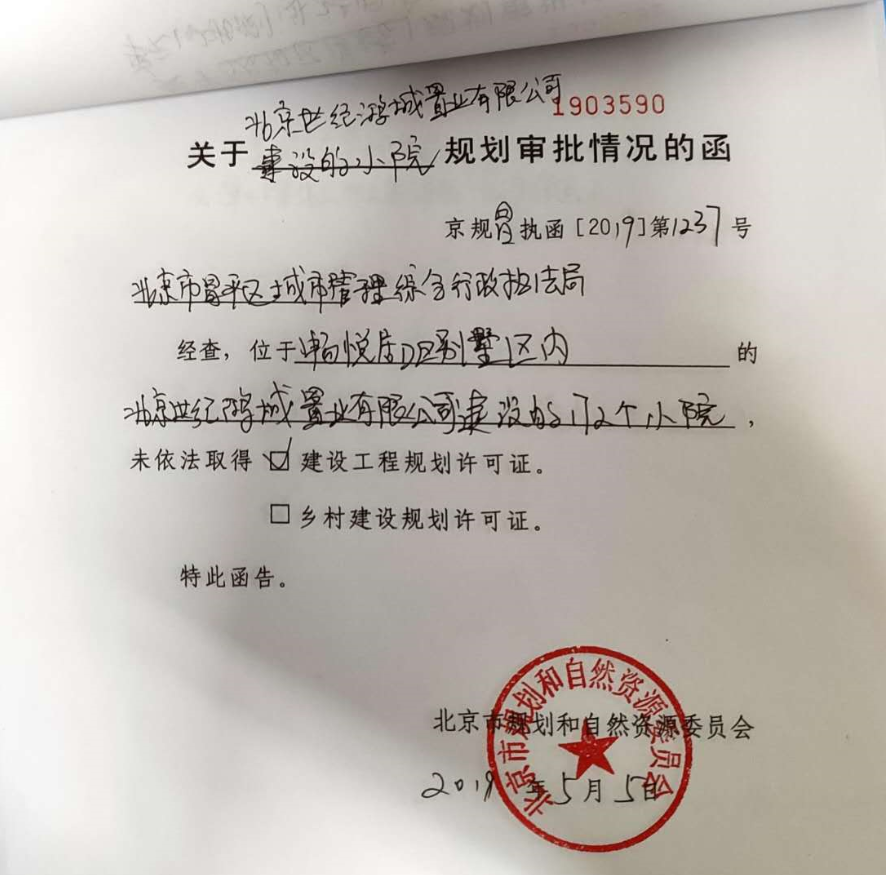 北京世纪鸿城置业有限公司
1903590
关于建设的小院规划审批情况的函
京规昌执函[2019]第1237号
北京市昌平区城市管理综合行政执法局
经查，位于畅悦居D区别墅区内的
北京世纪鸿城置业有限公司建设的172个小院，
未依法取得☑建设工程规划许可证。
□乡村建设规划许可证。
特此函告。
北京市规划和自然资源委员会
2019年5月5日
北京市规划和自然资源委员会